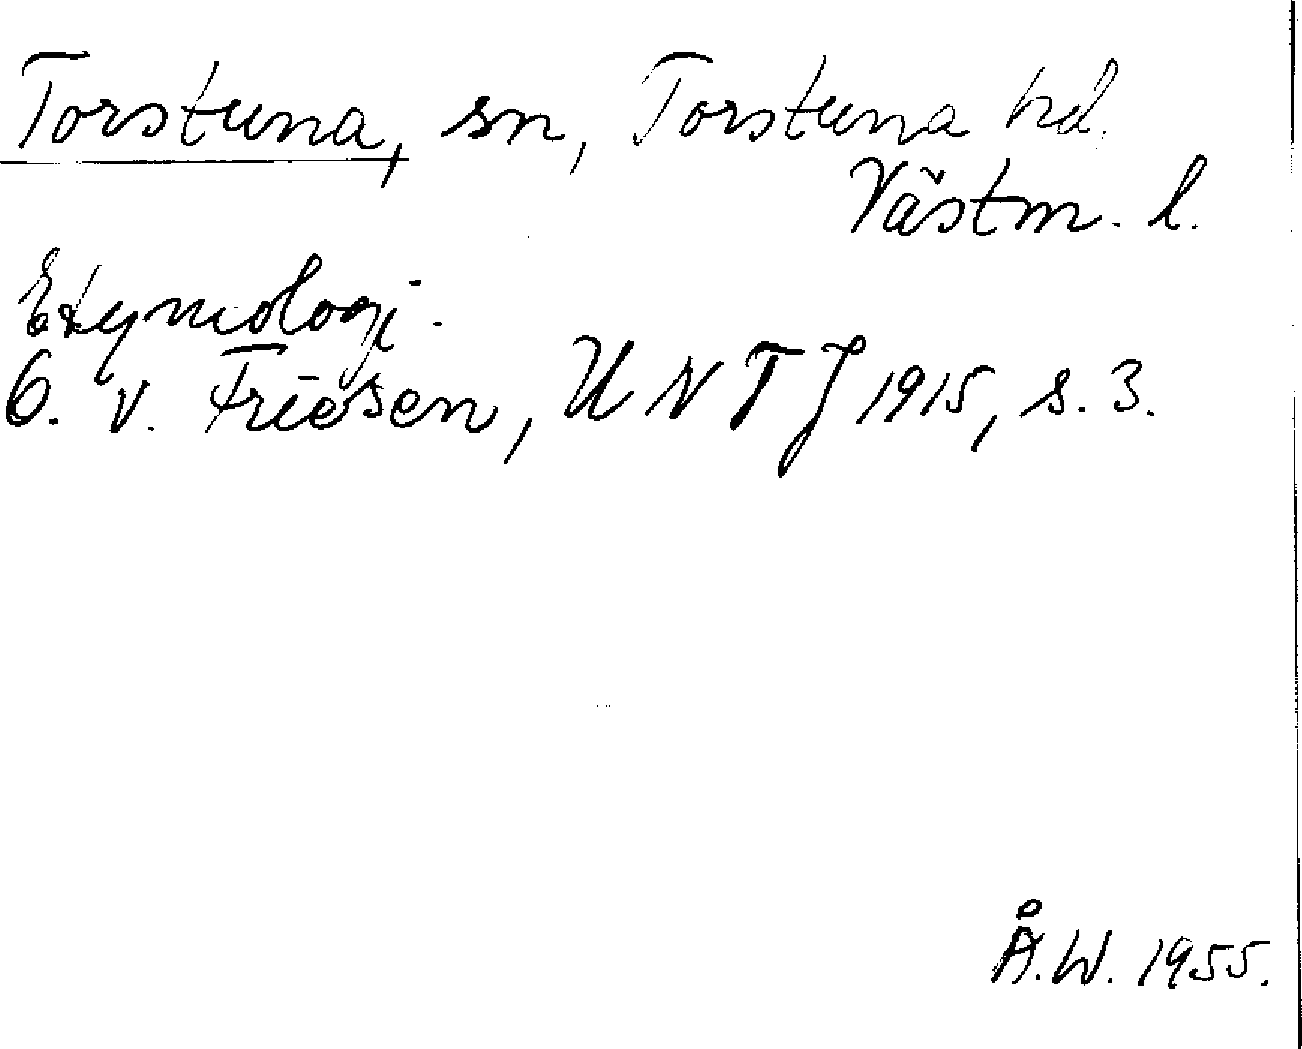 Torstuna, sn, Torstuna hd.
Västm. l.
Etymologi.
O. v. Friesen, UNTJ 1915, s. 3.
Å.W. 1955.